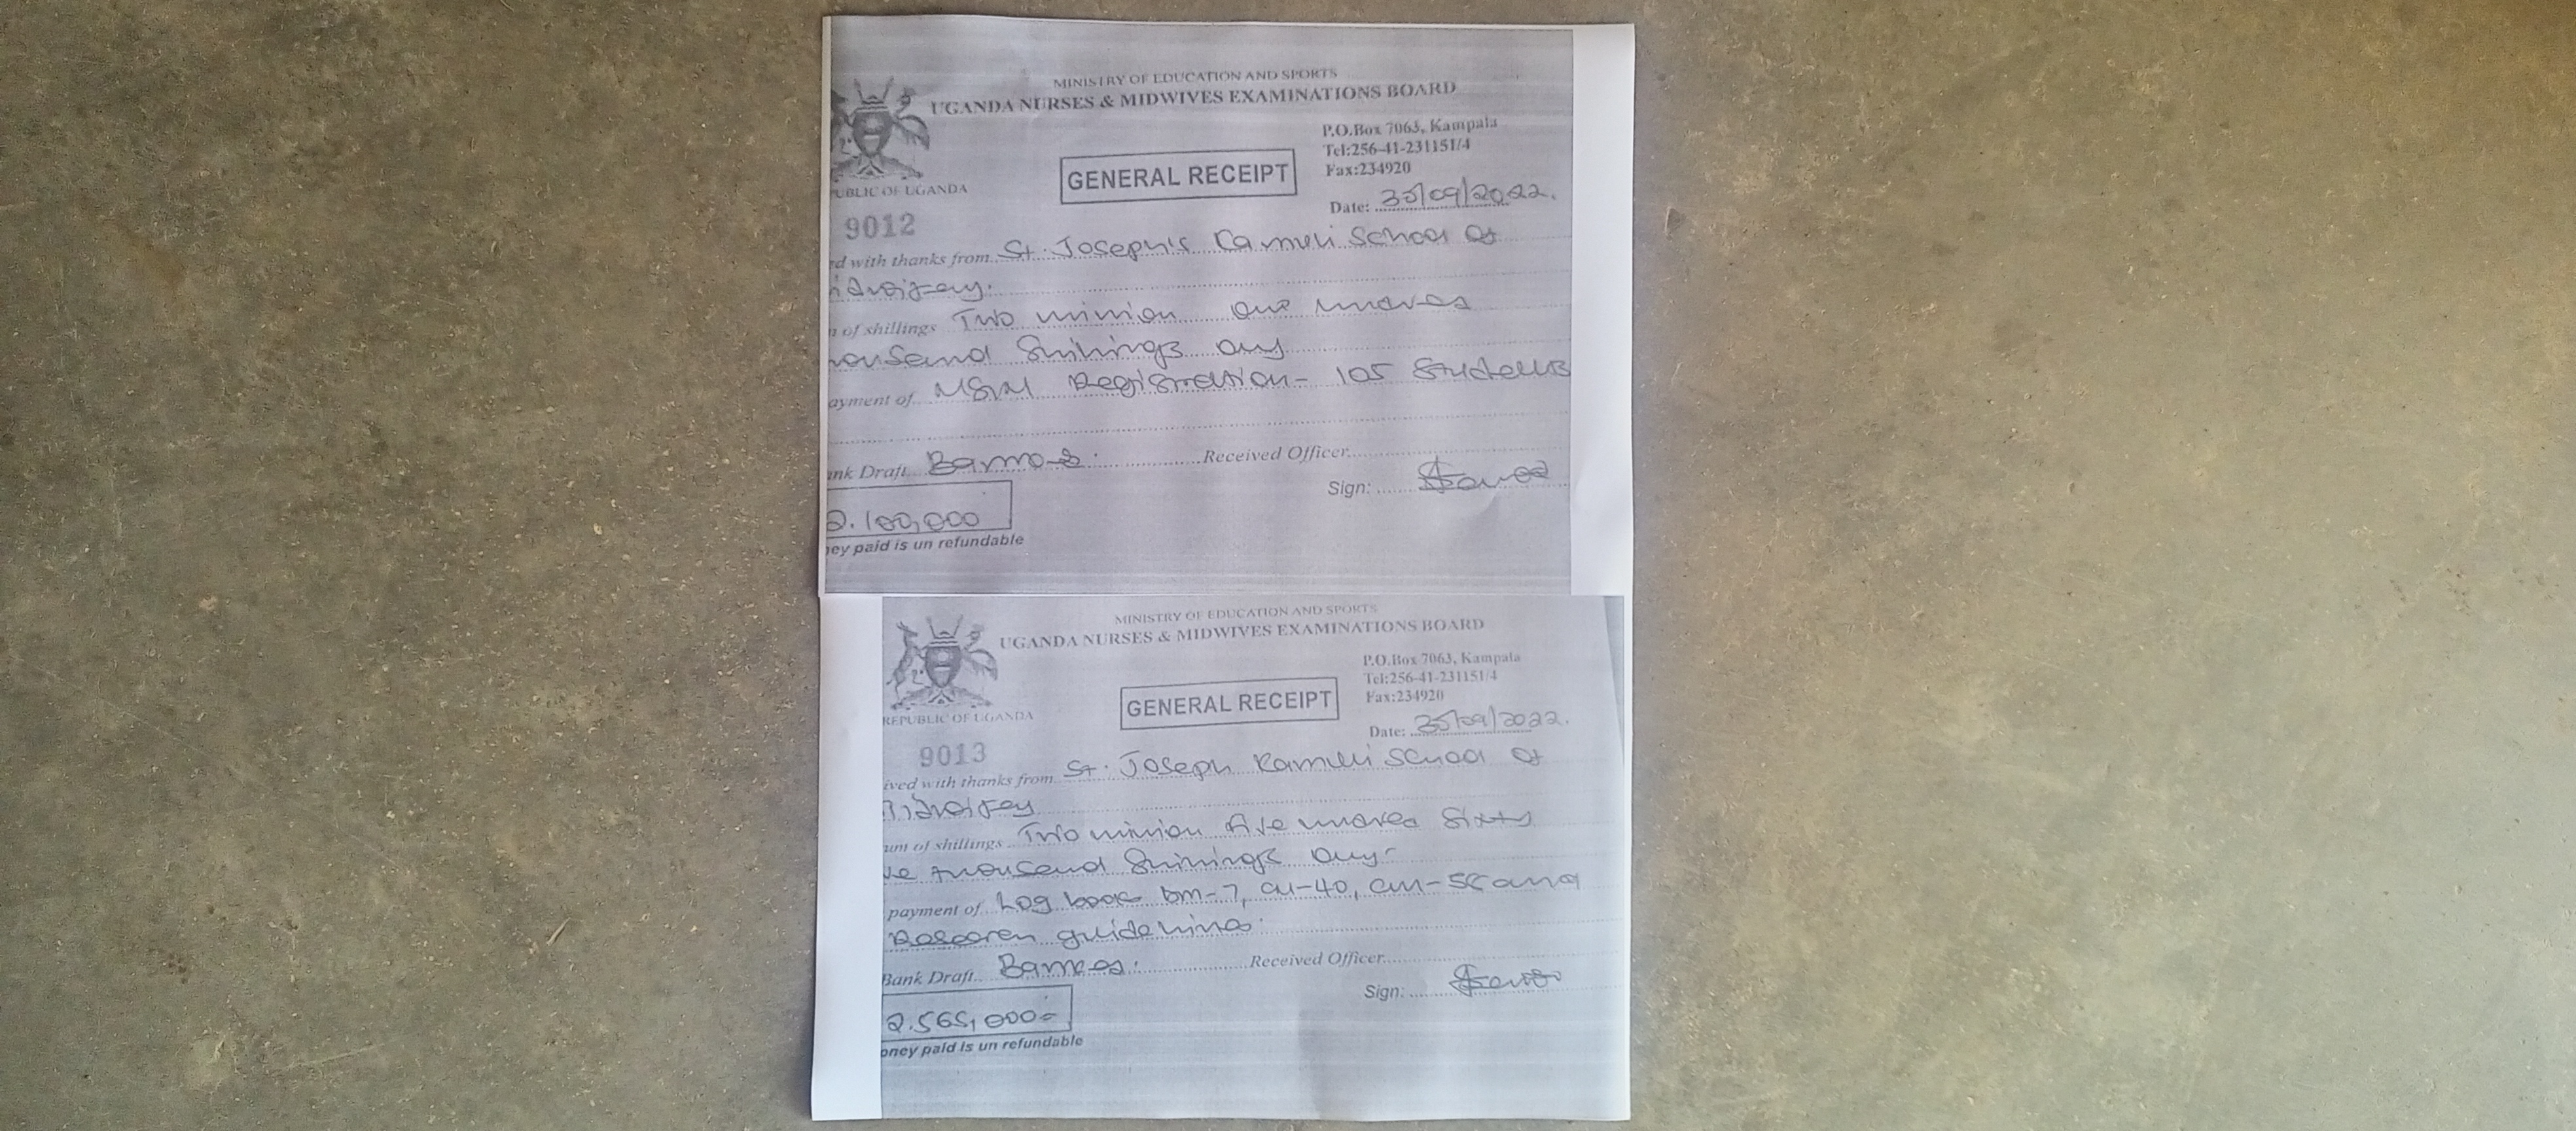 MINISTRY OF EDUCATION AND SPORTS
UGANDA NURSES & MIDWIVES EXAMINATIONS BOARD
P.O.Box 7063, Kampala
Tel:256-41-231151/4
Fax:234920
GENERAL RECEIPT
UBLIC OF UGANDA
Date: 30/09/2022.
9012
d with thanks from St. Joseph's Kamuli School of
idwifery.
of shillings Two million one hundred
housand Shillings only
ayment of NSIN Registration - 105 Students
nk Draft Received Officer
Sign:
2.100,000
ey paid is un refundable
MINISTRY OF EDUCATION AND SPORTS
UGANDA NURSES & MIDWIVES EXAMINATIONS BOARD
P.O.Box 7063, Kampala
Tel:256-41-231151/4
Fax:234920
GENERAL RECEIPT
REPUBLIC OF UGANDA
Date: 30/09/2022.
9013
ived with thanks from St. Joseph Kamuli School of
Midwifery
um of shillings Two million five hundred Sixty
ve thousand Shillings only-
payment of Log book bm-7, cn-40, cm-58 and
Research guidelines.
Bank Draft Received Officer
Sign:
2.565,000=
oney paid is un refundable